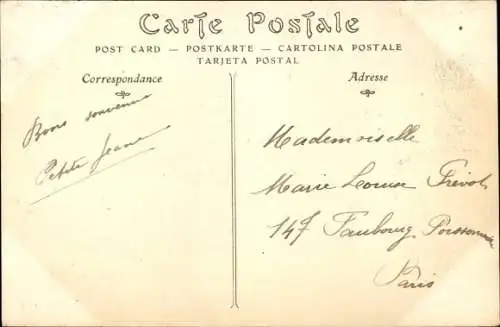 Carte Postale
POST CARD — POSTKARTE — CARTOLINA POSTALE
TARJETA POSTAL
Correspondance
Adresse
Bons souvenirs
Petite Jeane
Mademoiselle
Marie Louise Prévot
147 Faubourg Poissonnière
Paris